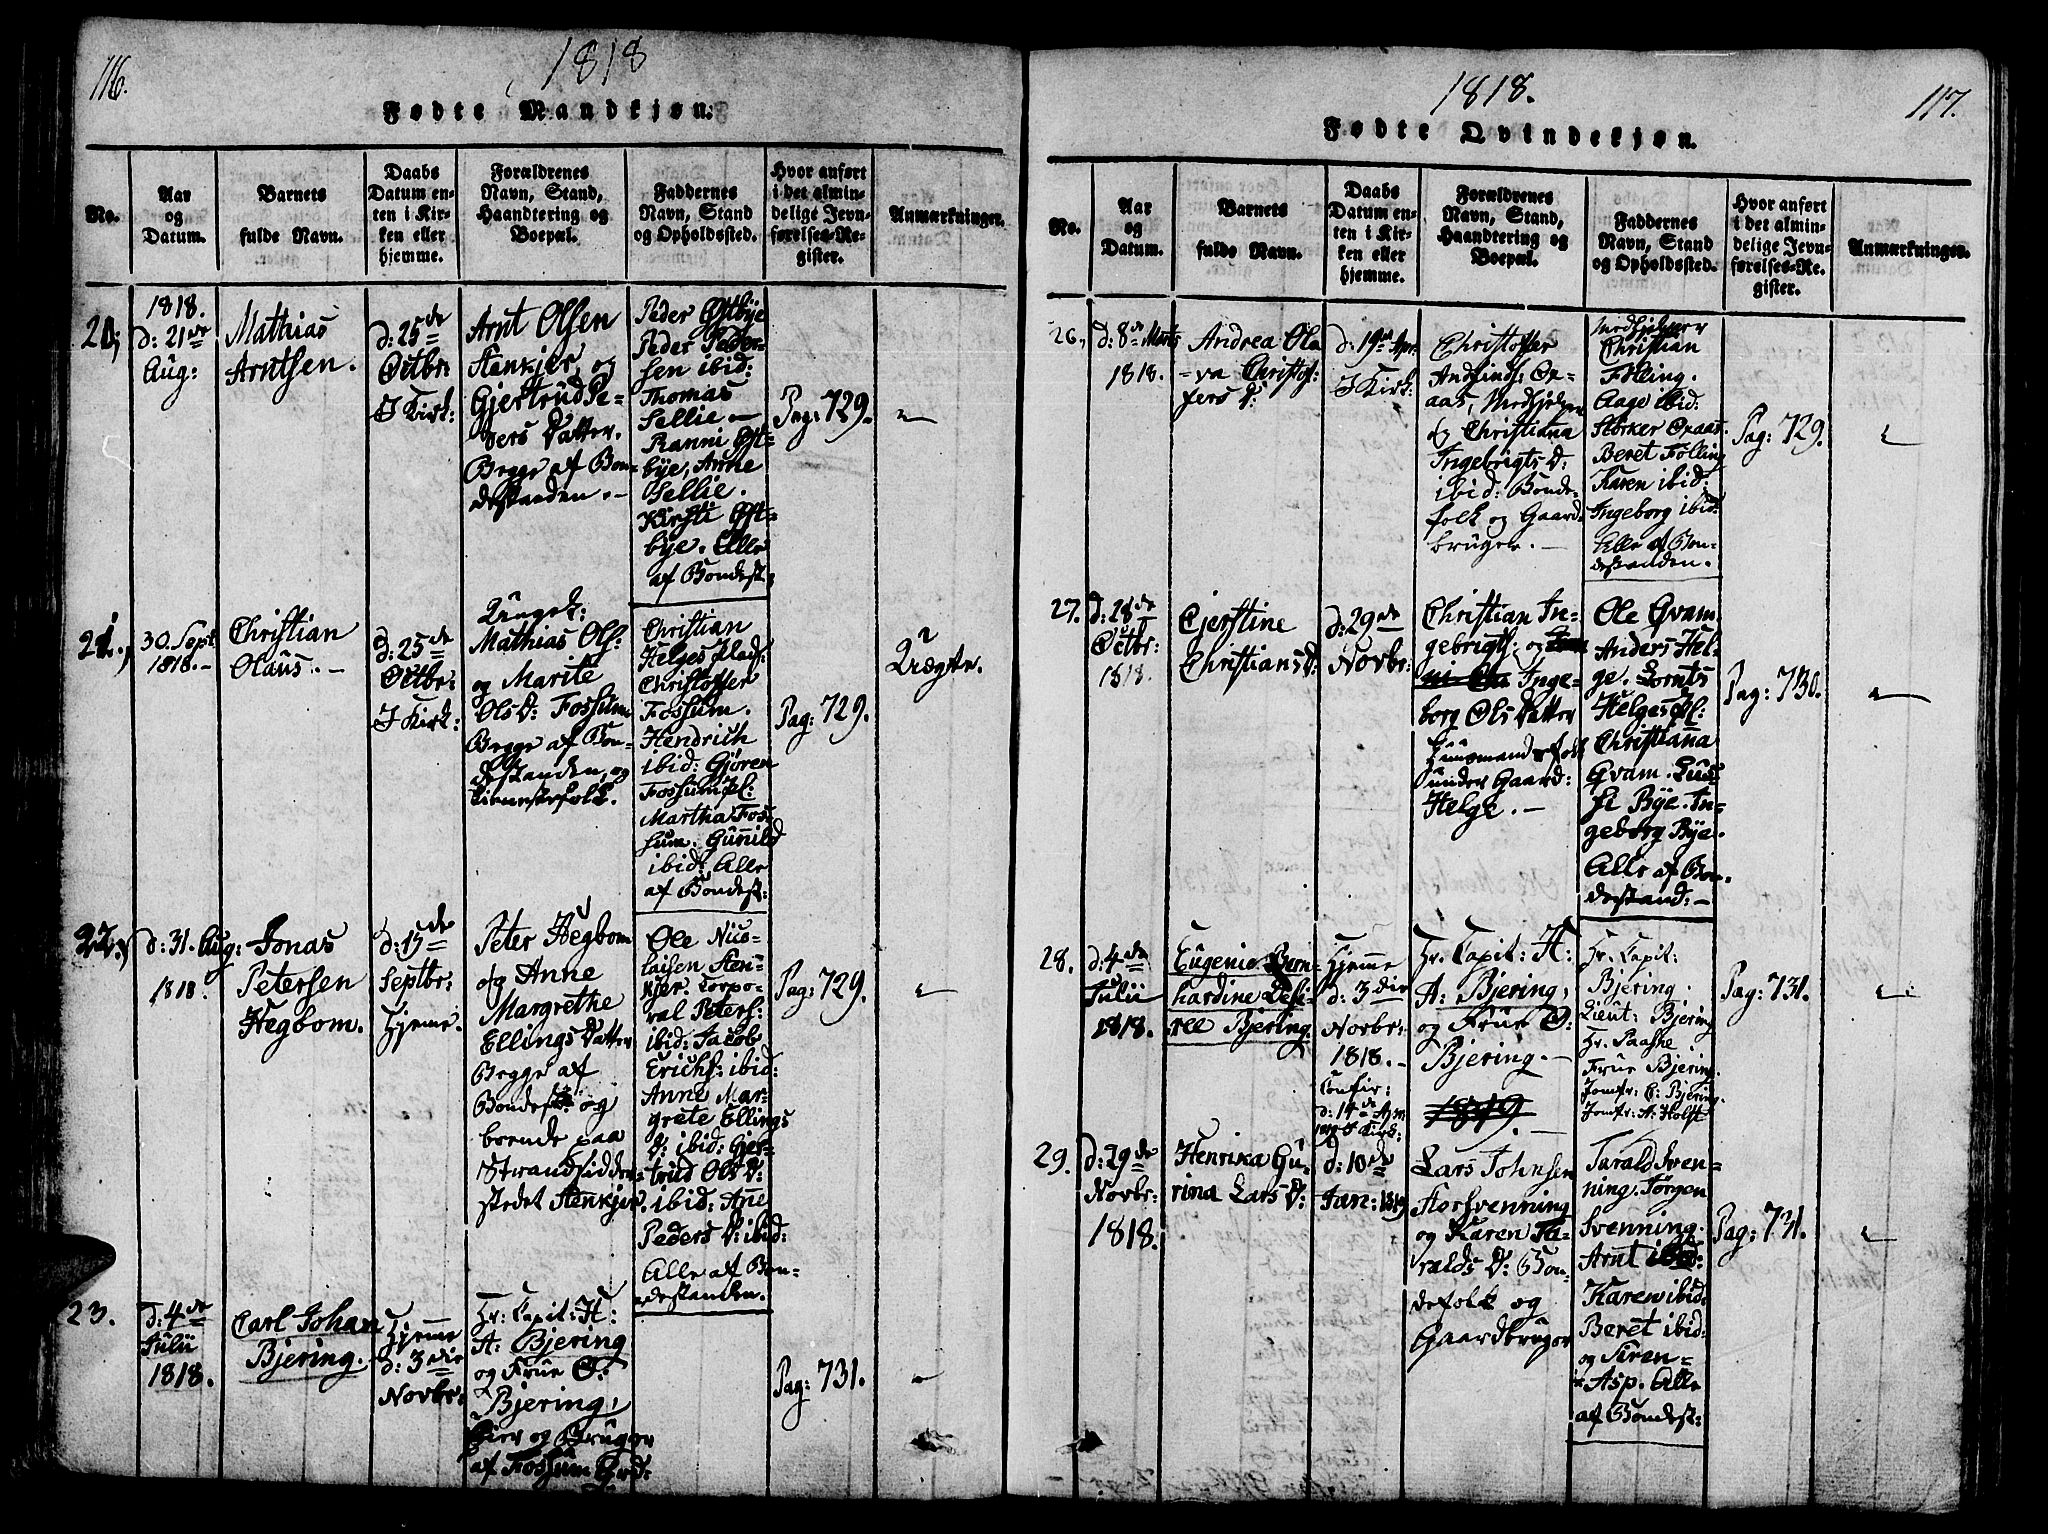 116.
1818
Fødte Mandkjøn.
No.
Aar
og
Datum.
Barnets
fulde Navn.
Daabs
Datum en-
ten i Kir-
ken eller
hjemme.
Forældrenes
Navn, Stand,
Haandtering og
Boepæl.
Faddernes
Navn, Stand
og Opholdssted.
Hvor anført
i det almin-
delige Jevn-
førelses-Re-
gister.
Anmærkninger.
20,
1818.
d: 21de
Aug:
Mathias
Arntsen.
d: 25de
Octbr:
I Kirk:
Arnt Olsen
Stenkjer, og
Gjertrud Pe-
ders Datter.
Begge af Bon-
destanden. -
Peder Østbye
Peder Peder-
sen ibid:
Thomas
Sellie -
Ranni Øst-
bye, Anne
Sellie.
Kirsti Øst-
bye. Alle
af Bondest:
Pag: 729.
21,
30. Sept.
1818. -
Christian
Olaus. -
d: 25de
Octbr:
I Kirk:
Ungk:
Mathias Ols:
og Marite
Ols D: Fossum
Begge af Bon-
destanden, og
tienestefolk.
Christian
Helges Plads:
Christoffer
Fossum.
Hendrich
ibid: Gjøren
Fossumpl:
Martha Fos-
sum. Gunild
ibid: Alle
af Bondest:
Pag: 729.
Uægte.
22,
d: 31. Aug:
1818.
Jonas
Petersen
Hegbom.
d: 15de
Septbr:
Hjeme.
Peter Hegbom
og Anne
Margrethe
Ellings Datter
Begge af
Bondest: og
boende paa
Strandsidder-
stedet Stenkjer.
Ole Nico-
laisen Sten-
kjer Corpo-
ral Peters:
ibid: Jacob
Erichs: ibid:
Anne Mar-
grete Ellings
D: ibid: Gjer-
trud Ols D:
ibid: Ane
Peders D: ibid:
Alle af Bon-
destanden.
Pag: 729.
23.
d: 4de
Julii
1818.
Carl Johan
Bjering.
Hjemme
d: 3die
Novbr:
Hr. Capit: H:
A: Bjering
og Frue O:
Bjering,
Eier og Bruger
af Fossum Grd:
Pag: 731.
117.
1818.
Fødte Qvindekjøn.
No.
Aar
og
Datum.
Barnets
fulde Navn.
Daabs
Datum en-
ten i Kir-
ken eller
hjemme.
Forældrenes
Navn, Stand,
Haandtering og
Boepæl.
Faddernes
Navn, Stand
og Opholdssted.
Hvor anført
i det almin-
delige Jevn-
førelses-Re-
gister.
Anmærkninger.
26,
d: 8de Marts
1818.
Andrea Ola
-va Christof-
fers D:
d: 19de Apr:
I Kirk:
Christoffer
aas, Medhjelper
og Christiana
Ingebrigts D:
ibid: Bonde-
folk og Gaard-
bruger. -
Medhjelper
Christian
Følling.
Aage ibid:
Størker
Beret Følling
Karen ibid:
Ingeborg ibid:
Alle af Bon-
destanden.
Pag: 729.
27.
d: 28de
Octbr:
1818.
Gjerstine
Christians D:
d: 29de
Novbr:
Christian In-
gebrigts: og
Inge-
borg Ols Datter
Huusmandsfolk
under Gaard:
Helge. -
Ole Qvam
Anders Hel-
ge. Lornts
Helgespl:
Christiana
Qvam.
Bye. In-
geborg Bye.
Alle af Bon-
destand: -
Pag: 730.
28.
d: 4de
Julii
1818.
Eugenie Bern-
hardine Desi-
ree Bjering.
Hjemme
d: 3die
Novbr:
1818. -
Confir:
d: 14de
Kirk:
Hr. Capit: H:
A: Bjering,
og Frue O:
Bjering. -
1819.
Hr. Capit:
Bjering.
Lieut: Bjering
Hr. Paaske.
Frue Bjering.
Jomfr: C: Bjering.
Jomfr: A: Holst
Pag: 731.
29.
d: 29de
Novbr:
1818.
Henrika Gu-
rina Lars D:
d: 10de
Jan: 1819
Lars Johnsen
Storsvenning
og Karen Ta-
ralds D: Bon-
defolk og
Gaardbruger
Tarald Sven-
ning. Jørgen
Svenning.
Arnt ibid:
Karen ibid:
Beret ibid:
og Siren
Asp. Alle
af Bondest:
Pag: 731.